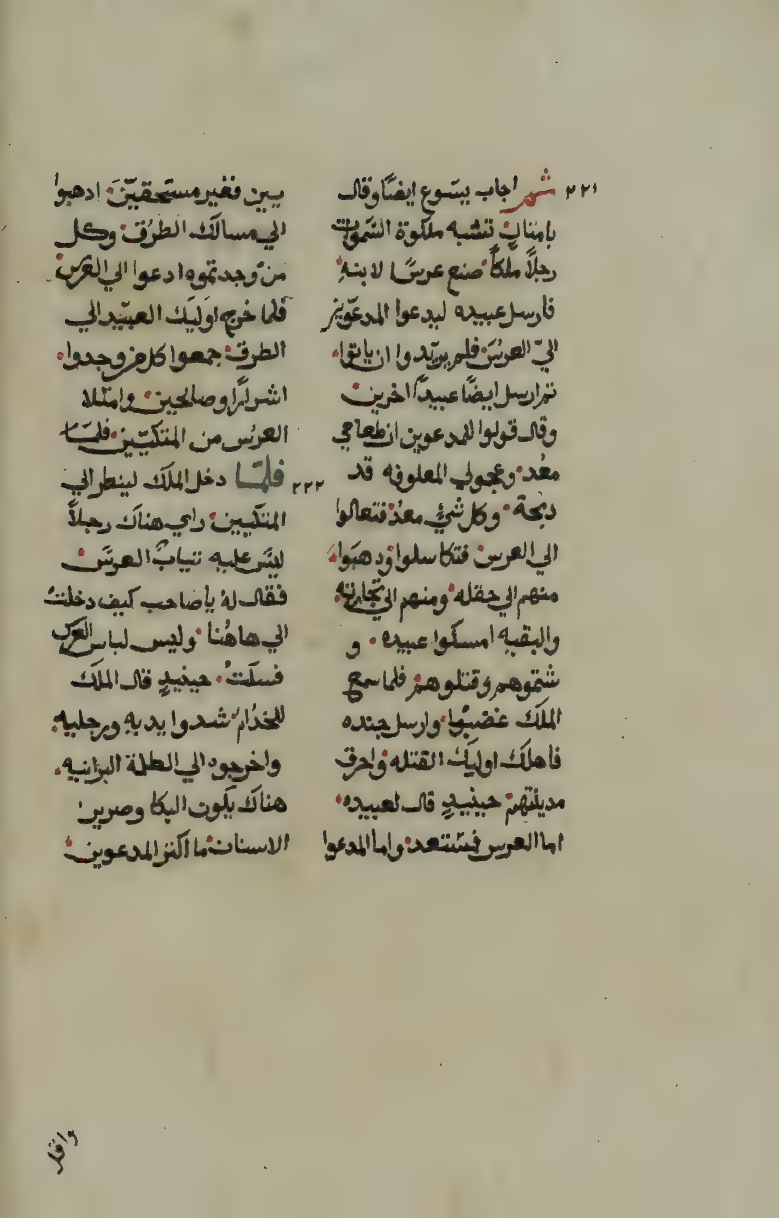 ٢٢١ ثم اجاب يسوع ايضًا وقال
بامثالٍ تشبه ملكوة السموات
رجلًا ملكًا صنع عرسًا لابنهِ
فارسل عبيده ليدعوا المدعوين
الي العرس فلم يريدوا ان ياتوا
ثم ارسل ايضًا عبيدًا اخرين
وقال قولوا للمدعوين ان طعامي
معد وعجولي المعلوفه قد
دبحة وكل شيٍ معدٌ فتعالوا
الي العرس فتكاسلوا ودهبوا
منهم الي حقله ومنهم الي تجارته
والبقيه امسكوا عبيده و
شتموهم وقتلوهم فلما سمع
الملك غضب وارسل جنده
فاهلك اوليك القتله واحرق
مدينتهم حينيدٍ قال لعبيده
اما العرس فمستعد واما المدعوا
يين فغير مستحقين ادهبوا
الي مسالك الطرق وكل
من وجدتموه ادعوا الي العرس
فلما خرج اوليك العبيد الي
الطرق جمعوا كل من وجدوا
اشرارًا وصالحين وامتلا
العرس من المتكيين فلما
٢٢٢ فلما دخل الملك لينظر الي
المتكيين راي هناك رجلًا
ليس عليه تياب العرس
فقال لهُ يا صاحب كيف دخلت
الي هاهُنا وليس لباس العرس
فسكت حينيدٍ قال الملك
للخدام شدوا يديه ورجليه
واخرجوه الي الظلمة البرانيه
هناك يكون البكا وصرير
الاسنان ما اكثر المدعوين
واقل